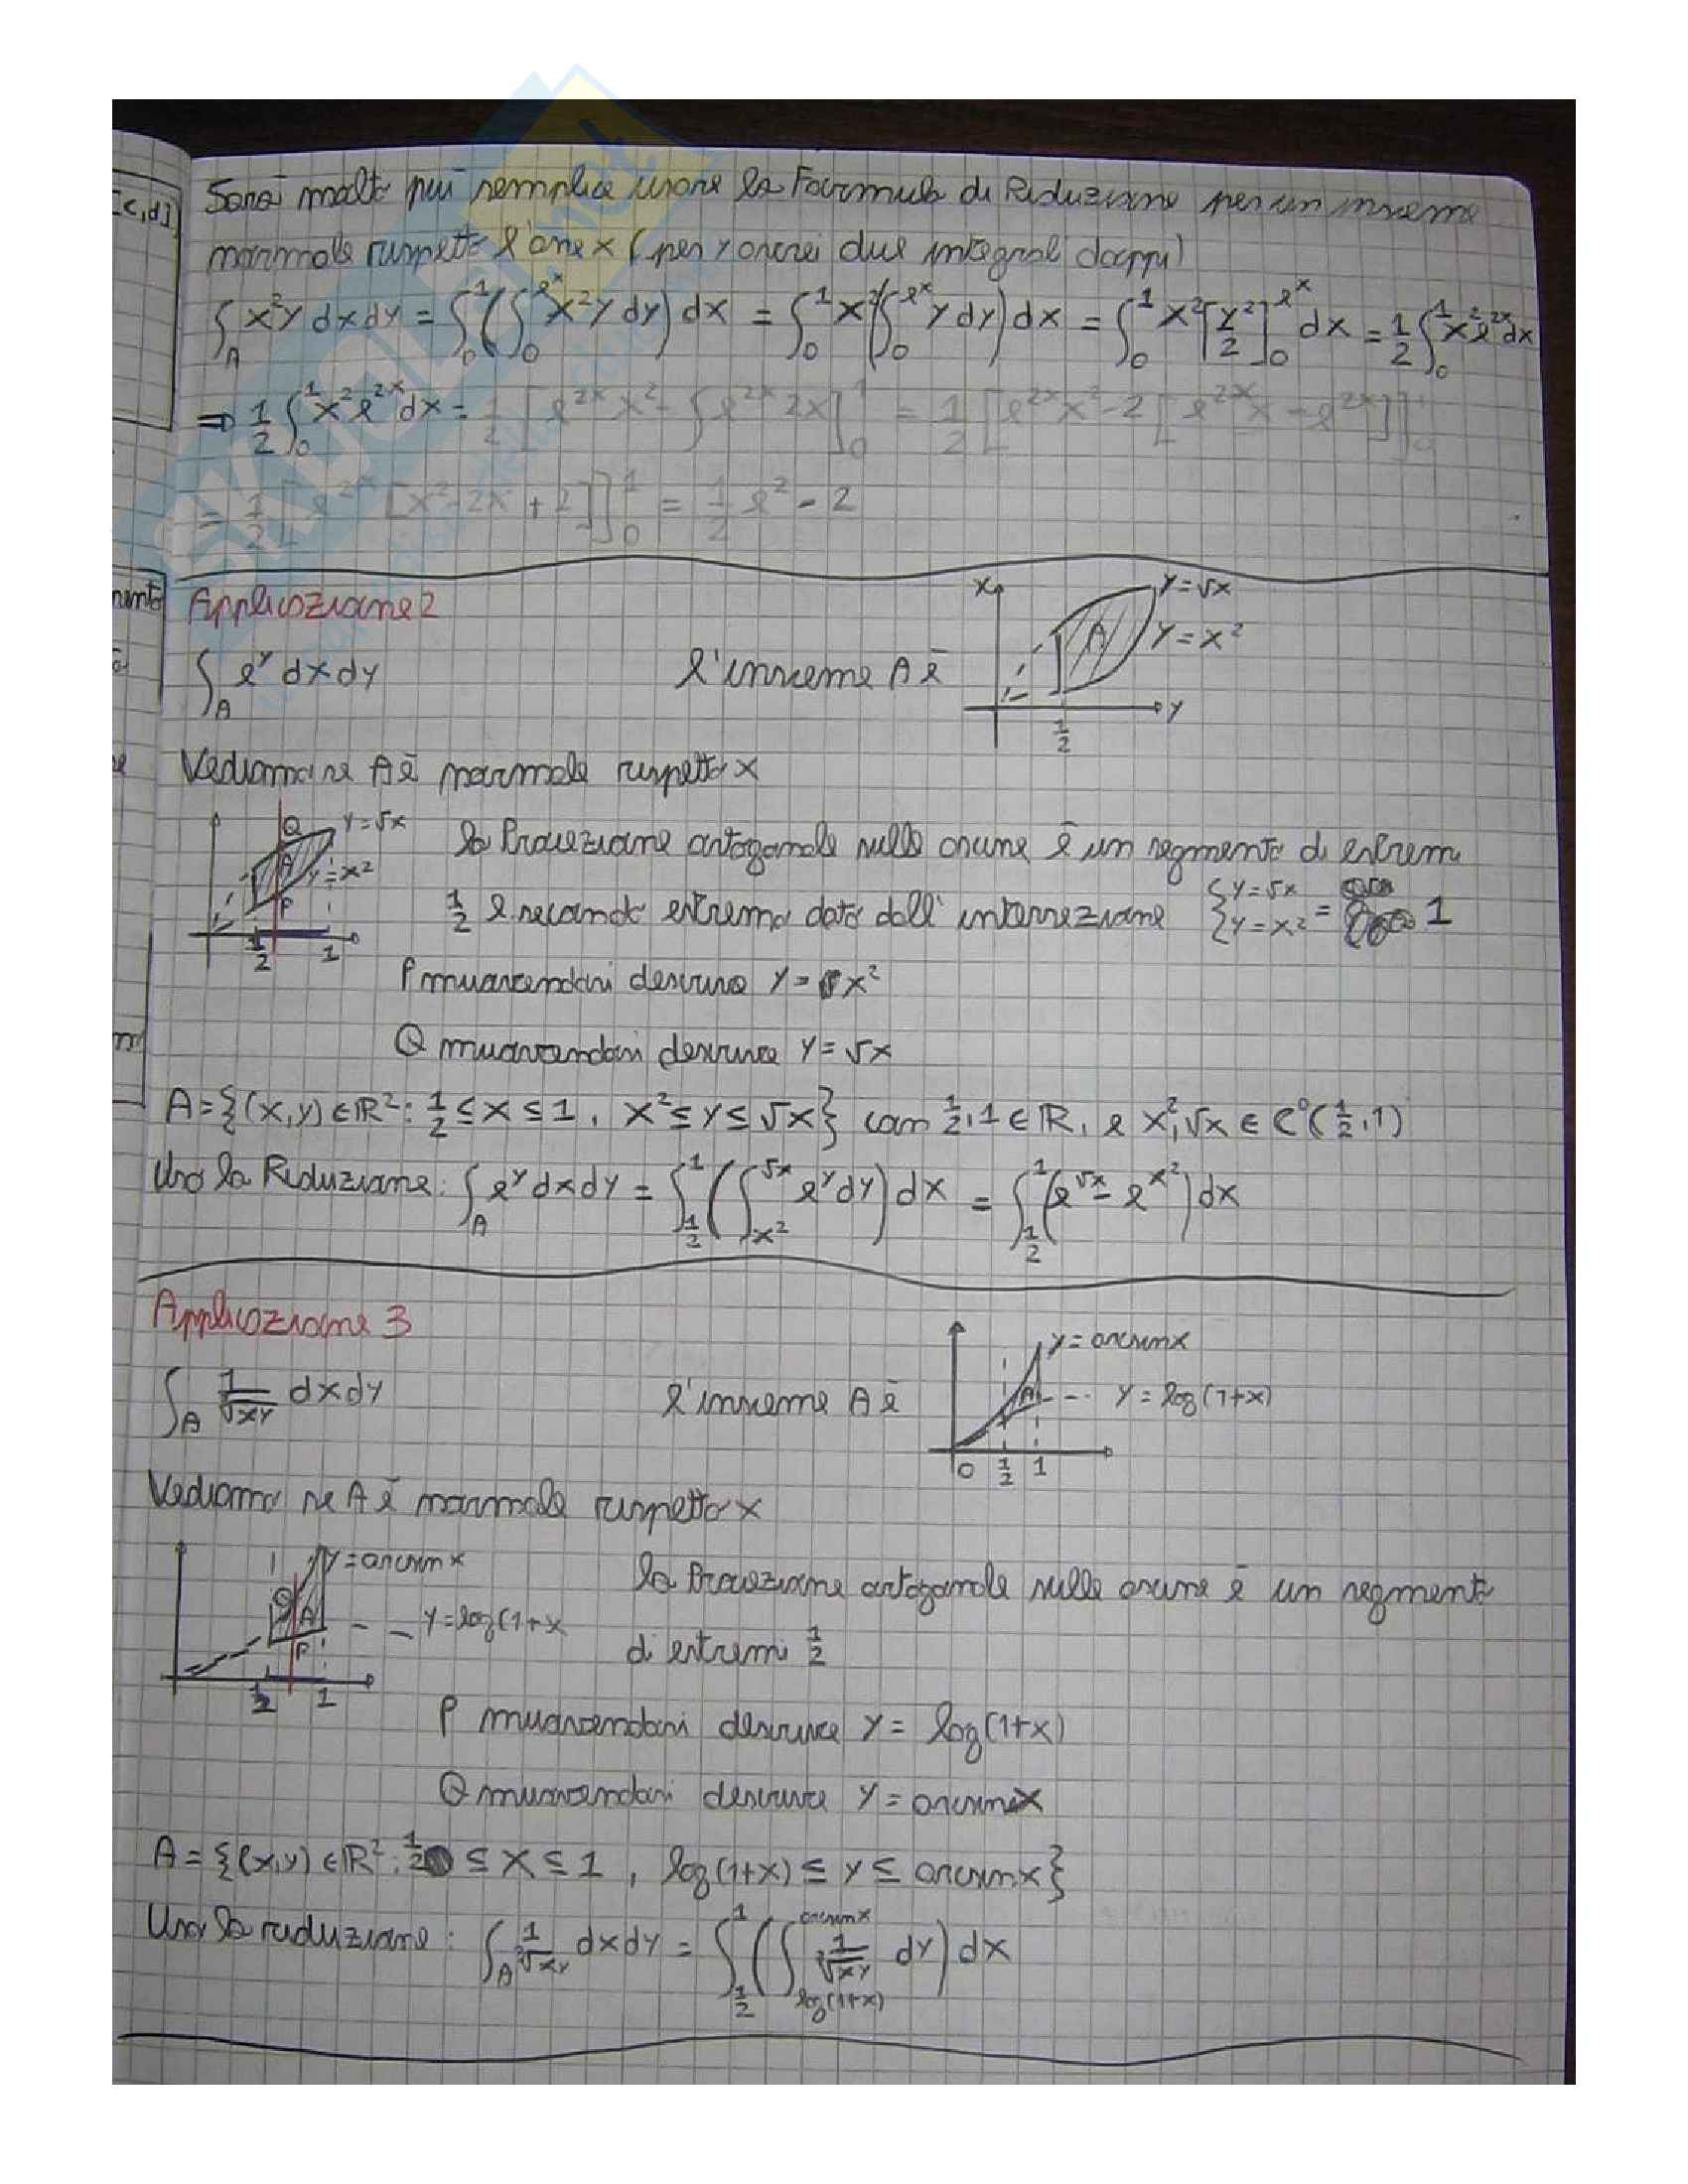 Sarai molto più semplice usare la Formula di Riduzione per un insieme
normale rispetto l'asse x (per y avrei due integrali doppi)
[c,d]
∫_A x²y dxdy = ∫_0^1 (∫_0^{e^x} x²y dy) dx = ∫_0^1 x² (∫_0^{e^x} y dy) dx = ∫_0^1 x² [y²/2]_0^{e^x} dx = 1/2 ∫_0^1 x² e^{2x} dx
⇒ 1/2 ∫_0^1 x² e^{2x} dx = 1/2 [e^{2x} x² - ∫ e^{2x} 2x]_0^1 = 1/2 [e^{2x} x² - 2 [e^{2x} x - e^{2x}]]_0^1
= 1/2 [e^{2x} [x² - 2x + 2]]_0^1 = 1/2 e² - 2
Applicazione 2
x y = √x
A y = x²
∫_A e^y dxdy l'insieme A è
y
1/2
Vediamo se A è normale rispetto x
Q y = √x
A y = x²
P
1/2 1
la Proiezione ortogonale sulle ascisse è un segmento di estremi
1/2 e secondo estremo dato dall'intersezione {y = √x {y = x² = 1
P muovendosi descrive y = x²
Q muovendosi descrive y = √x
A = {(x,y) ∈ ℝ² : 1/2 ≤ x ≤ 1, x² ≤ y ≤ √x} con 1/2, 1 ∈ ℝ, e x², √x ∈ C⁰(1/2, 1)
Uso la Riduzione: ∫_A e^y dxdy = ∫_{1/2}^1 (∫_{x²}^{√x} e^y dy) dx = ∫_{1/2}^1 (e^{√x} - e^{x²}) dx
Applicazione 3
y = arcsin x
∫_A 1/∛xy dxdy l'insieme A è A y = log(1+x)
0 1/2 1
Vediamo se A è normale rispetto x
y = arcsin x
Q A y = log(1+x
P
1/2 1
la Proiezione ortogonale sulle ascisse è un segmento
di estremi 1/2
P muovendosi descrive y = log(1+x)
Q muovendosi descrive y = arcsin x
A = {(x,y) ∈ ℝ² : 1/2 ≤ x ≤ 1, log(1+x) ≤ y ≤ arcsin x}
Uso la riduzione: ∫_A 1/∛xy dxdy = ∫_{1/2}^1 (∫_{log(1+x)}^{arcsin x} 1/∛xy dy) dx